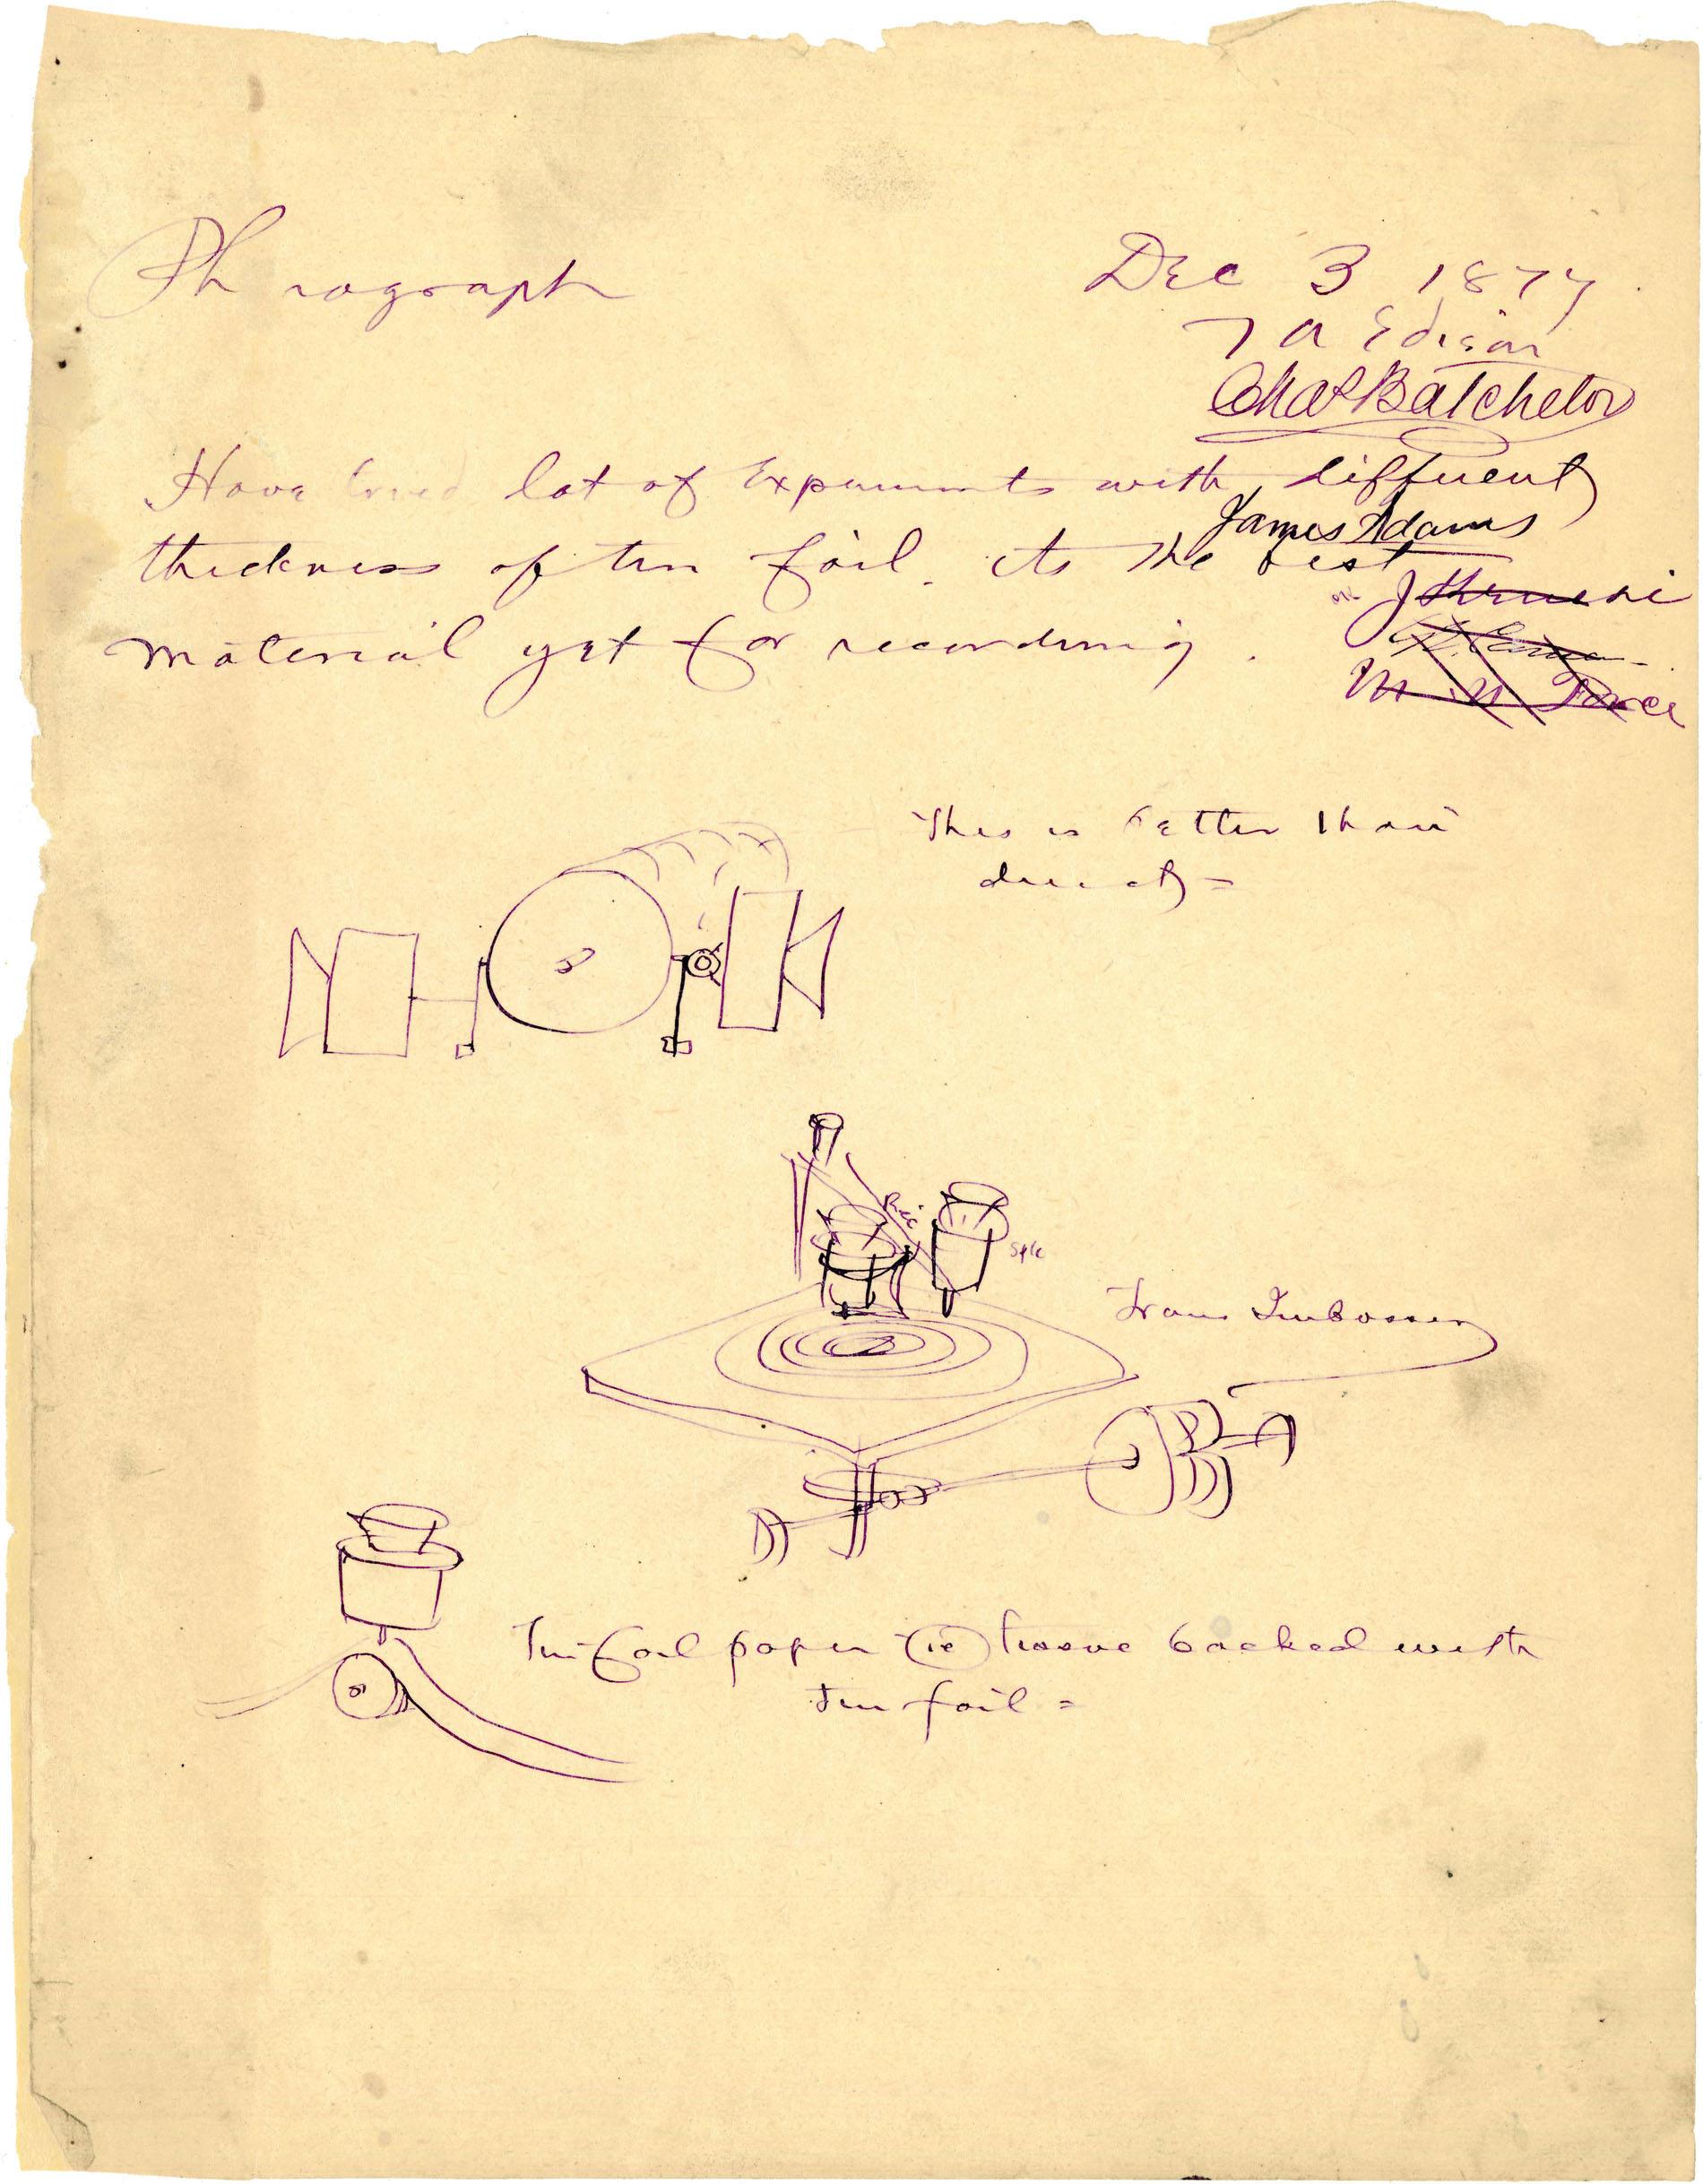 Phonograph
Dec 3 1877
T A Edison
Chas Batchelor
Have tried lot of Experiments with different
James Adams
thickness of tin foil. its the best
J Kruesi
material yet for recording.
This is better than
direct =
Rec
Spk
Trans Imbosser
Tin foil paper (ie) tissue backed with
tin foil =